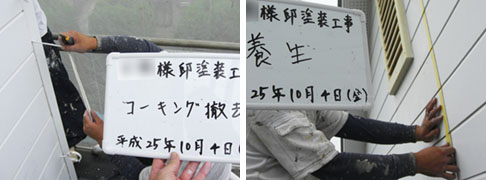 様邸塗装工
コーキング撤去
平成25年10月4日(
様邸塗装工事
養生
25年10月4日(金)